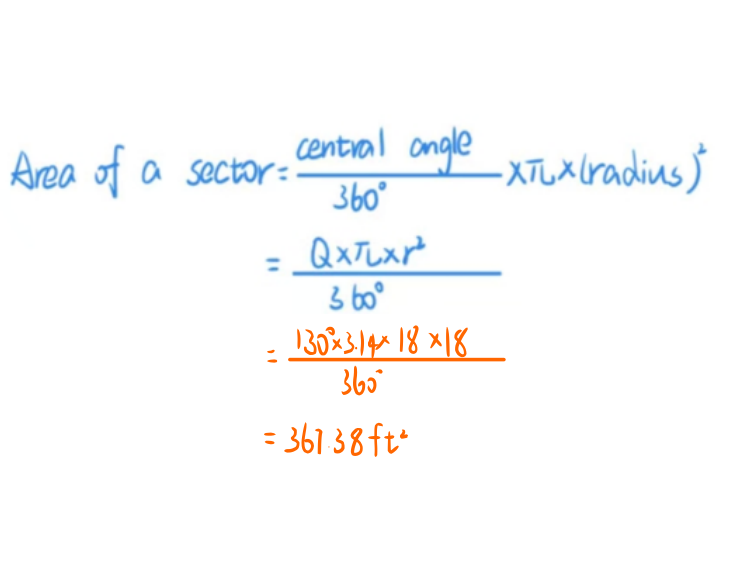 Area of a sector = central angle / 360° × π × (radius)²
= Q × π × r² / 360°
= 130° × 3.14 × 18 × 18 / 360°
= 367.38 ft²